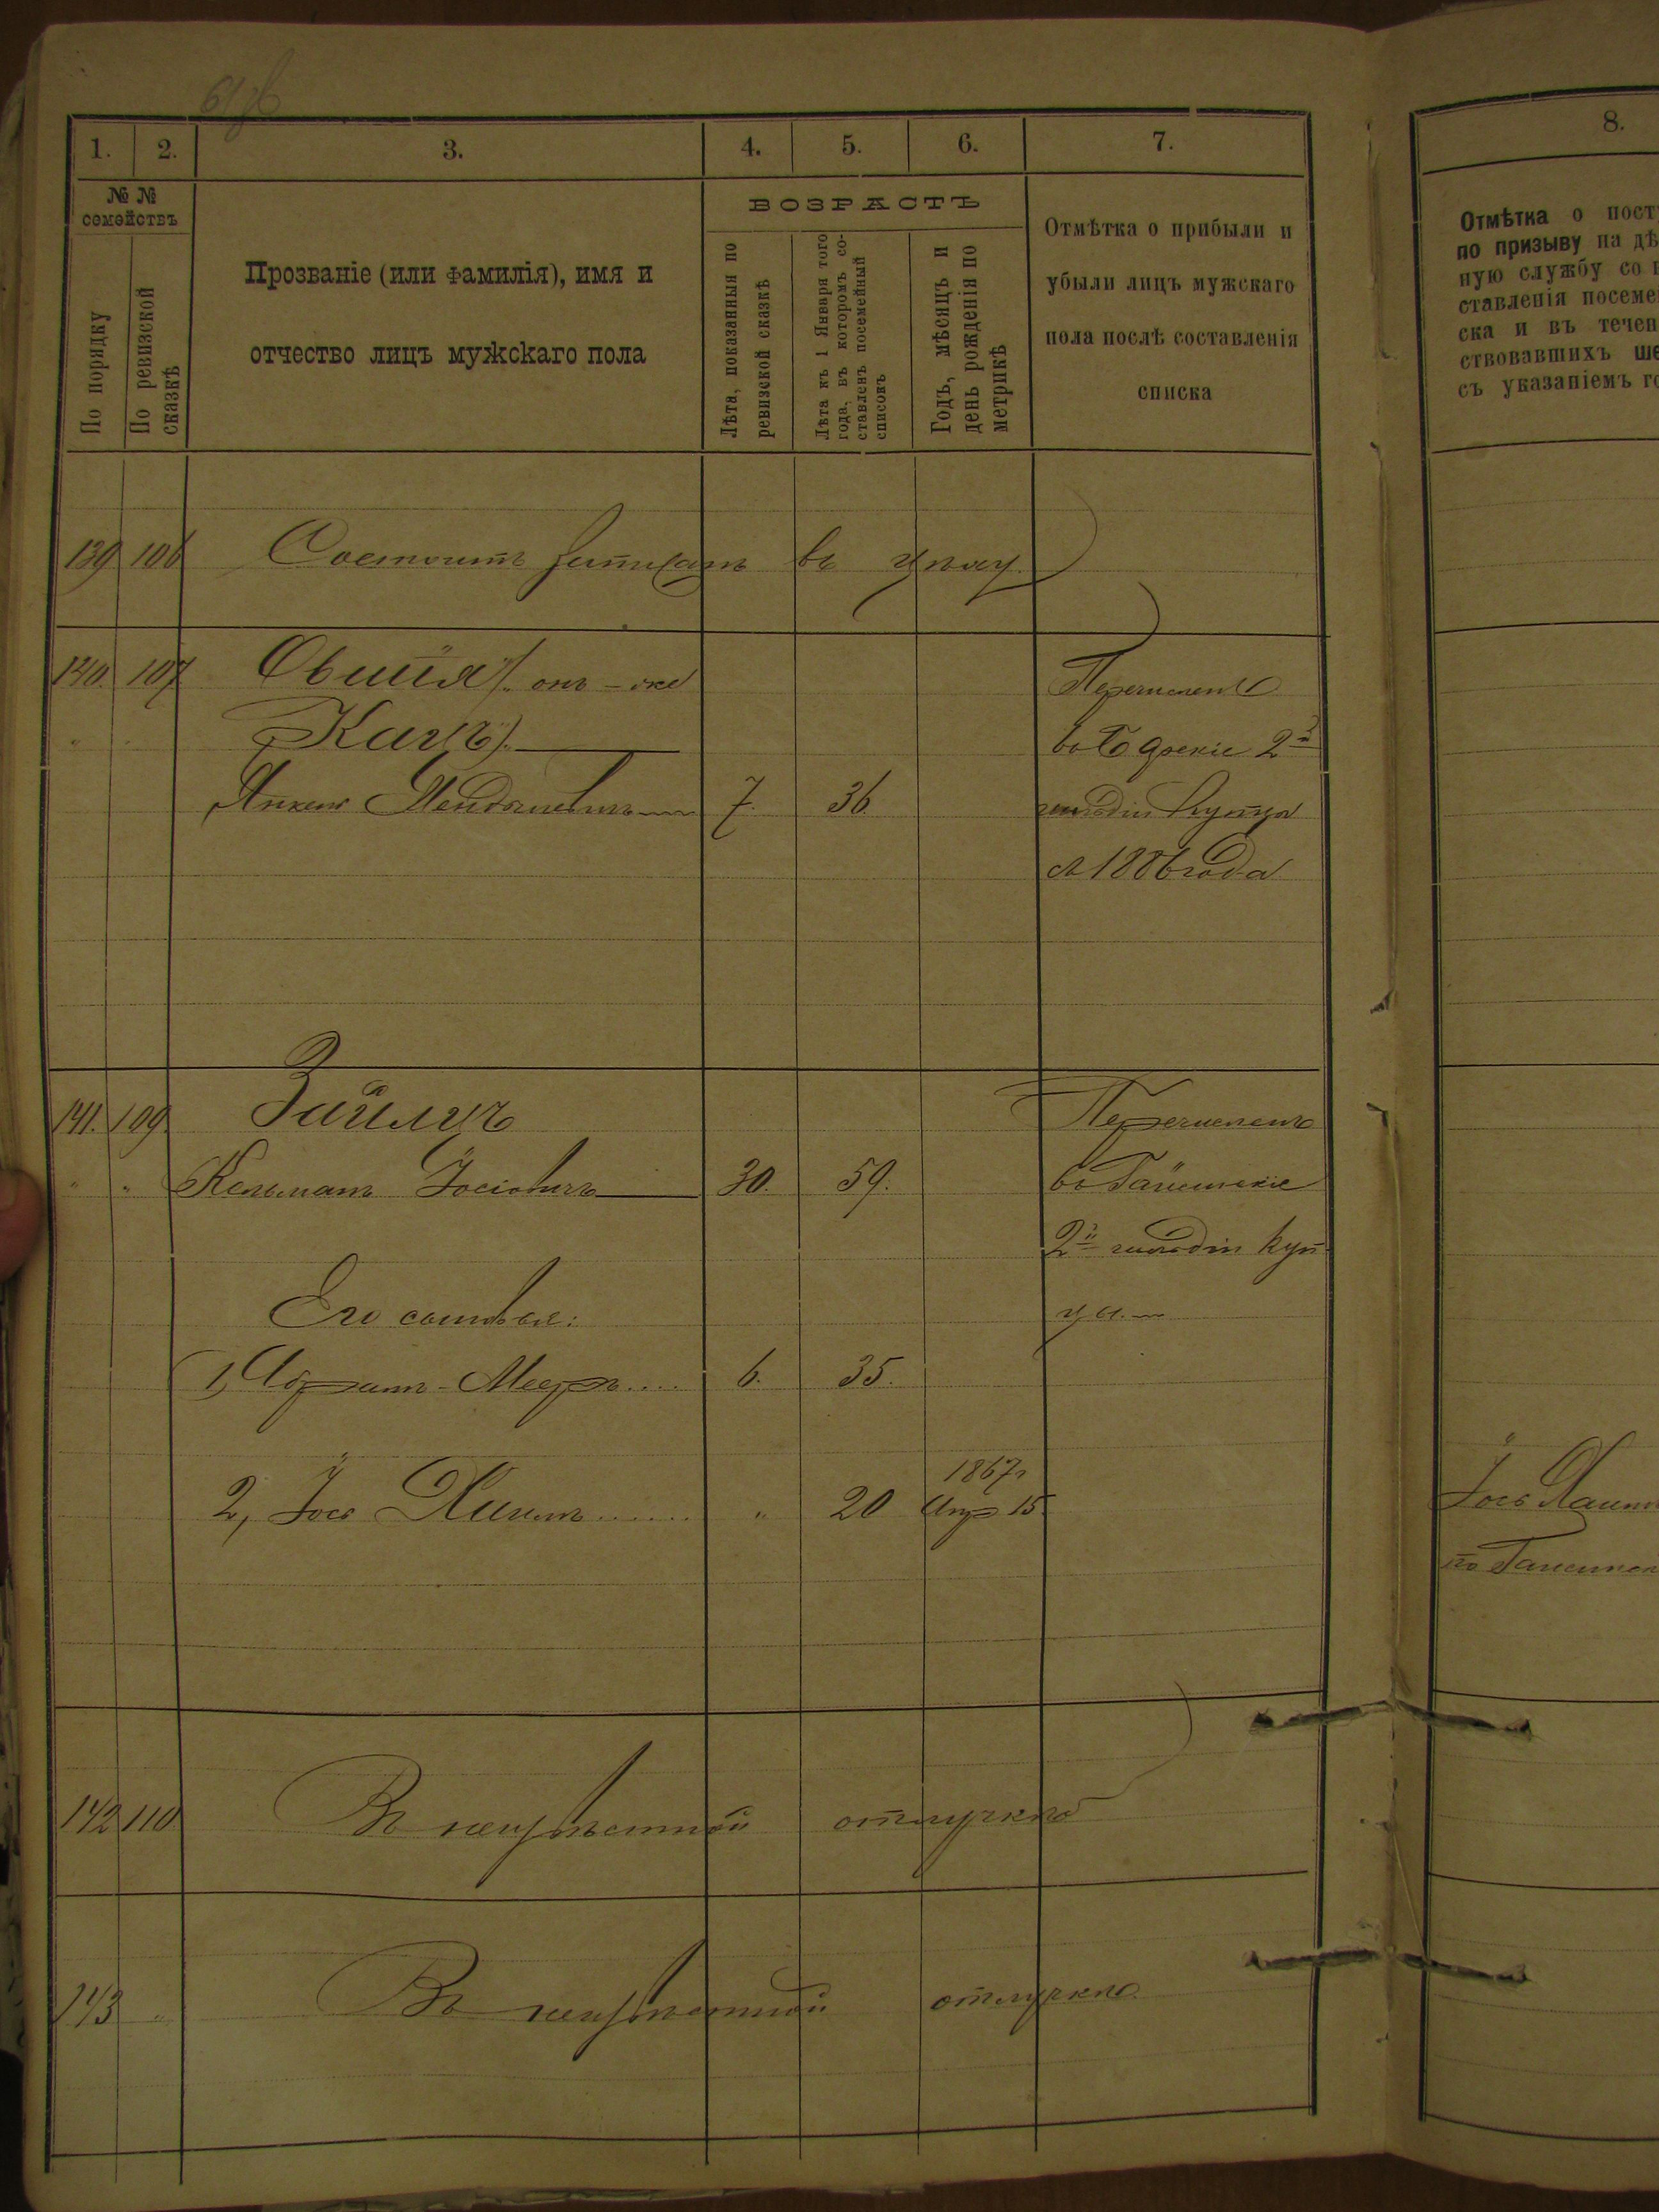 1. 2. 3. 4. 5. 6. 7.
№ № семействъ
По порядку
По ревизской сказкѣ
Прозваніе (или фамилія), имя и
отчество лицъ мужскаго пола
ВОЗРАСТЪ
Лѣта, показанныя по
ревизской сказкѣ
Лѣта къ 1 Января того
года, въ которомъ со-
ставленъ посемейный
списокъ
Годъ, мѣсяцъ и
день рожденія по
метрикѣ
Отмѣтка о прибыли и
убыли лицъ мужскаго
пола послѣ составленія
списка
139 106 Состоитъ въ
140. 107 (онъ-же Перечисленъ
" " Кацъ). въ 2й
Янкель 7. 36. гильдіи купцы
съ 1886 года
141. 109. Перечисленъ
" " Кельманъ Іосіовичъ 30. 59. въ Гайсинскіе
2й гильдіи куп
цы.
Его сыновья:
1, Абрамъ-Мееръ.... 6. 35.
1867г
2, Іось Хаимъ...... " 20 Апр 15.
142 110 Въ неизвѣстной отлучкѣ
143 " Въ неизвѣстной отлучкѣ.
8.
Отмѣтка о пост
по призыву на дѣ
ную службу со в
ставленія посеме
ска и въ течен
ствовавшихъ ше
съ указаніемъ го
Іось Хаим
по Гайсинск